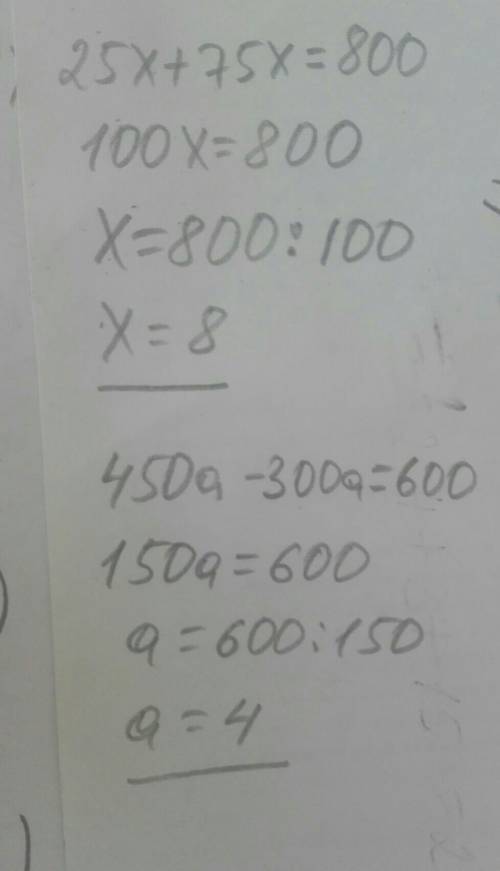 25x+75x=800
100x=800
x=800:100
x=8
450a-300a=600
150a=600
a=600:150
a=4